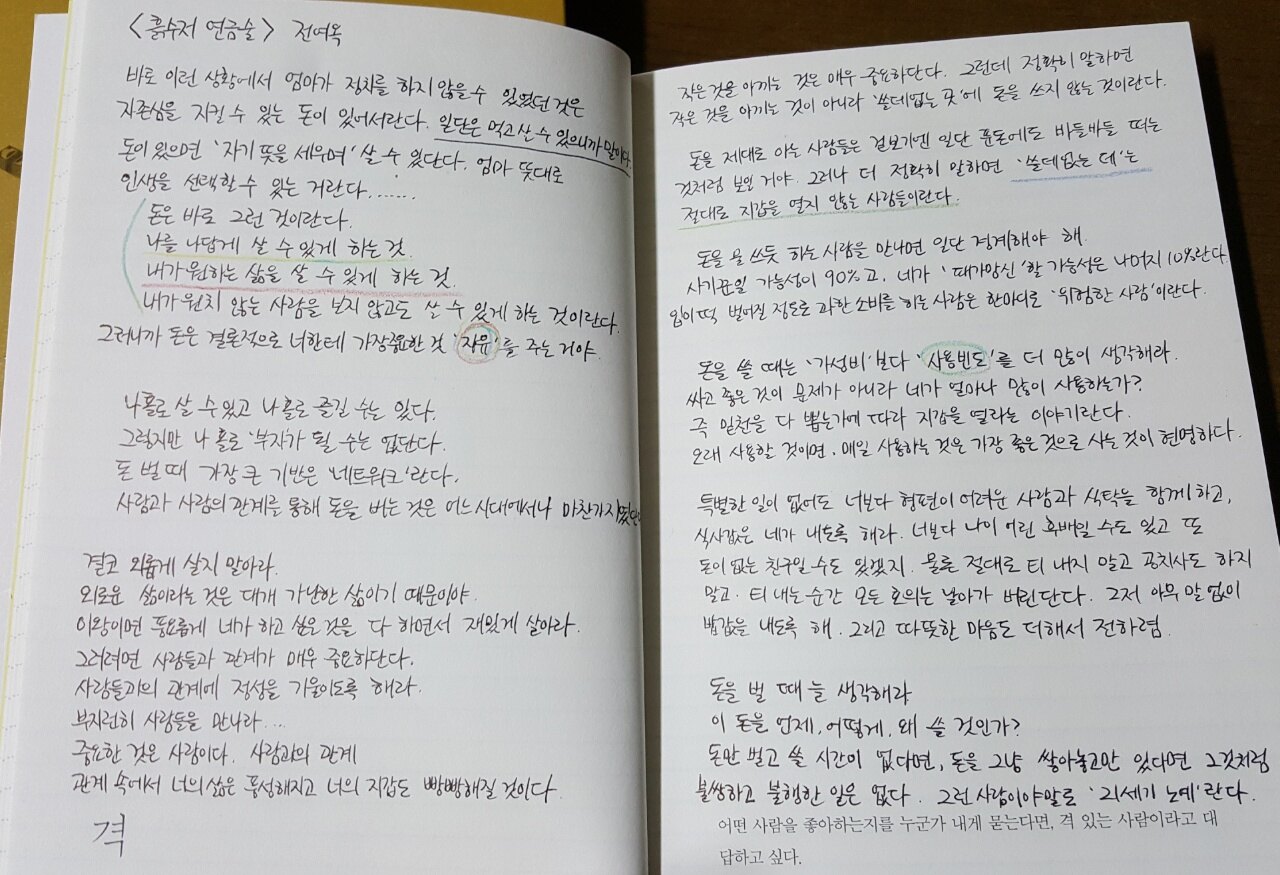 <흙수저 연금술> 전여옥
바로 이런 상황에서 엄마가 정치를 하지 않을 수 있었던 것은
자존심을 지킬 수 있는 돈이 있어서란다. 일단은 먹고 살 수 있으니까 말이다.
돈이 있으면 '자기 뜻을 세우며' 살 수 있단다. 엄마 뜻대로
인생을 선택할 수 있는 거란다.......
돈은 바로 그런 것이란다.
나를 나답게 살 수 있게 하는 것.
내가 원하는 삶을 살 수 있게 하는 것.
내가 원치 않는 사람을 보지 않고도 살 수 있게 하는 것이란다.
그러니까 돈은 결론적으로 너한테 가장 중요한 것 '자유'를 주는 거야.
나 홀로 살 수 있고 나 홀로 즐길 수는 있다.
그렇지만 나 홀로 '부자가 될 수는 없단다.
돈 벌 때 가장 큰 기반은 '네트워크'란다.
사람과 사람의 관계를 통해 돈을 버는 것은 어느 시대에서나 마찬가지였단다
결코 외롭게 살지 말아라.
외로운 삶이라는 것은 대개 가난한 삶이기 때문이야.
이왕이면 풍요롭게 네가 하고 싶은 것을 다 하면서 재밌게 살아라.
그러려면 사람들과 관계가 매우 중요하단다.
사람들과의 관계에 정성을 기울이도록 해라.
부지런히 사람들을 만나라....
중요한 것은 사람이다. 사람과의 관계
관계 속에서 너의 삶은 풍성해지고 너의 지갑도 빵빵해질 것이다.
격
작은 것을 아끼는 것은 매우 중요하단다. 그런데 정확히 말하면
작은 것을 아끼는 것이 아니라 '쓸데없는 곳'에 돈을 쓰지 않는 것이란다.
돈을 제대로 아는 사람들은 겉보기엔 일단 푼돈에도 바들바들 떠는
것처럼 보일 거야. 그러나 더 정확히 말하면 '쓸데없는 데'는
절대로 지갑을 열지 않는 사람들이란다.
돈을 물 쓰듯 하는 사람을 만나면 일단 경계해야 해.
사기꾼일 가능성이 90%고, 네가 '패가망신'할 가능성은 나머지 10%란다
입이 떡 벌어질 정도로 과한 소비를 하는 사람은 한마디로 '위험한 사람'이란다.
돈을 쓸 때는 '가성비'보다 '사용빈도'를 더 많이 생각해라.
싸고 좋은 것이 문제가 아니라 네가 얼마나 많이 사용하는가?
즉 밑천을 다 뽑는가에 따라 지갑을 열라는 이야기란다.
오래 사용할 것이면, 매일 사용하는 것은 가장 좋은 것으로 사는 것이 현명하다.
특별한 일이 없어도 너보다 형편이 어려운 사람과 식탁을 함께 하고,
식사값은 네가 내도록 해라. 너보다 나이 어린 후배일 수도 있고 또
돈이 없는 친구일 수도 있겠지. 물론 절대로 티 내지 말고 공치사도 하지
말고. 티 내는 순간 모든 호의는 날아가 버린단다. 그저 아무 말 없이
밥값을 내도록 해. 그리고 따뜻한 마음도 더해서 전하렴.
돈을 벌 때 늘 생각해라
이 돈을 언제, 어떻게, 왜 쓸 것인가?
돈만 벌고 쓸 시간이 없다면, 돈을 그냥 쌓아놓고만 있다면 그것처럼
불쌍하고 불행한 일은 없다. 그런 사람이야말로 '21세기 노예'란다.
어떤 사람을 좋아하는지를 누군가 내게 묻는다면, 격 있는 사람이라고 대
답하고 싶다.